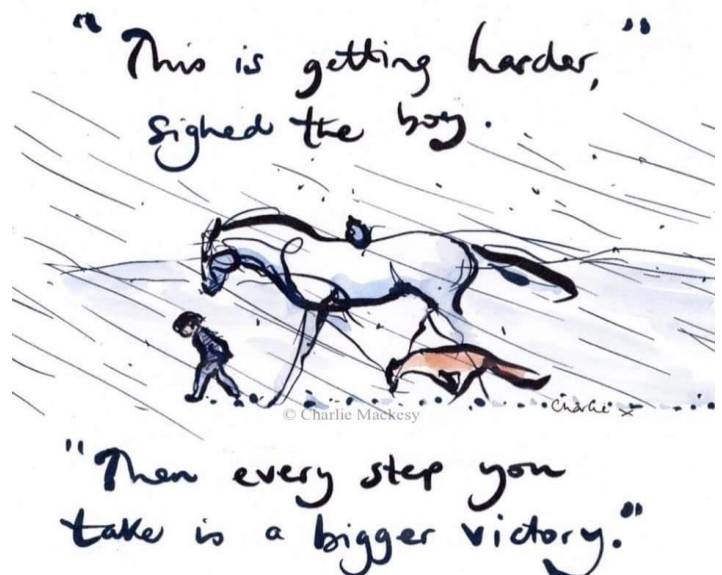 "This is getting harder,"
sighed the boy.
© Charlie Mackesy
Charlie x
"Then every step you
take is a bigger victory."